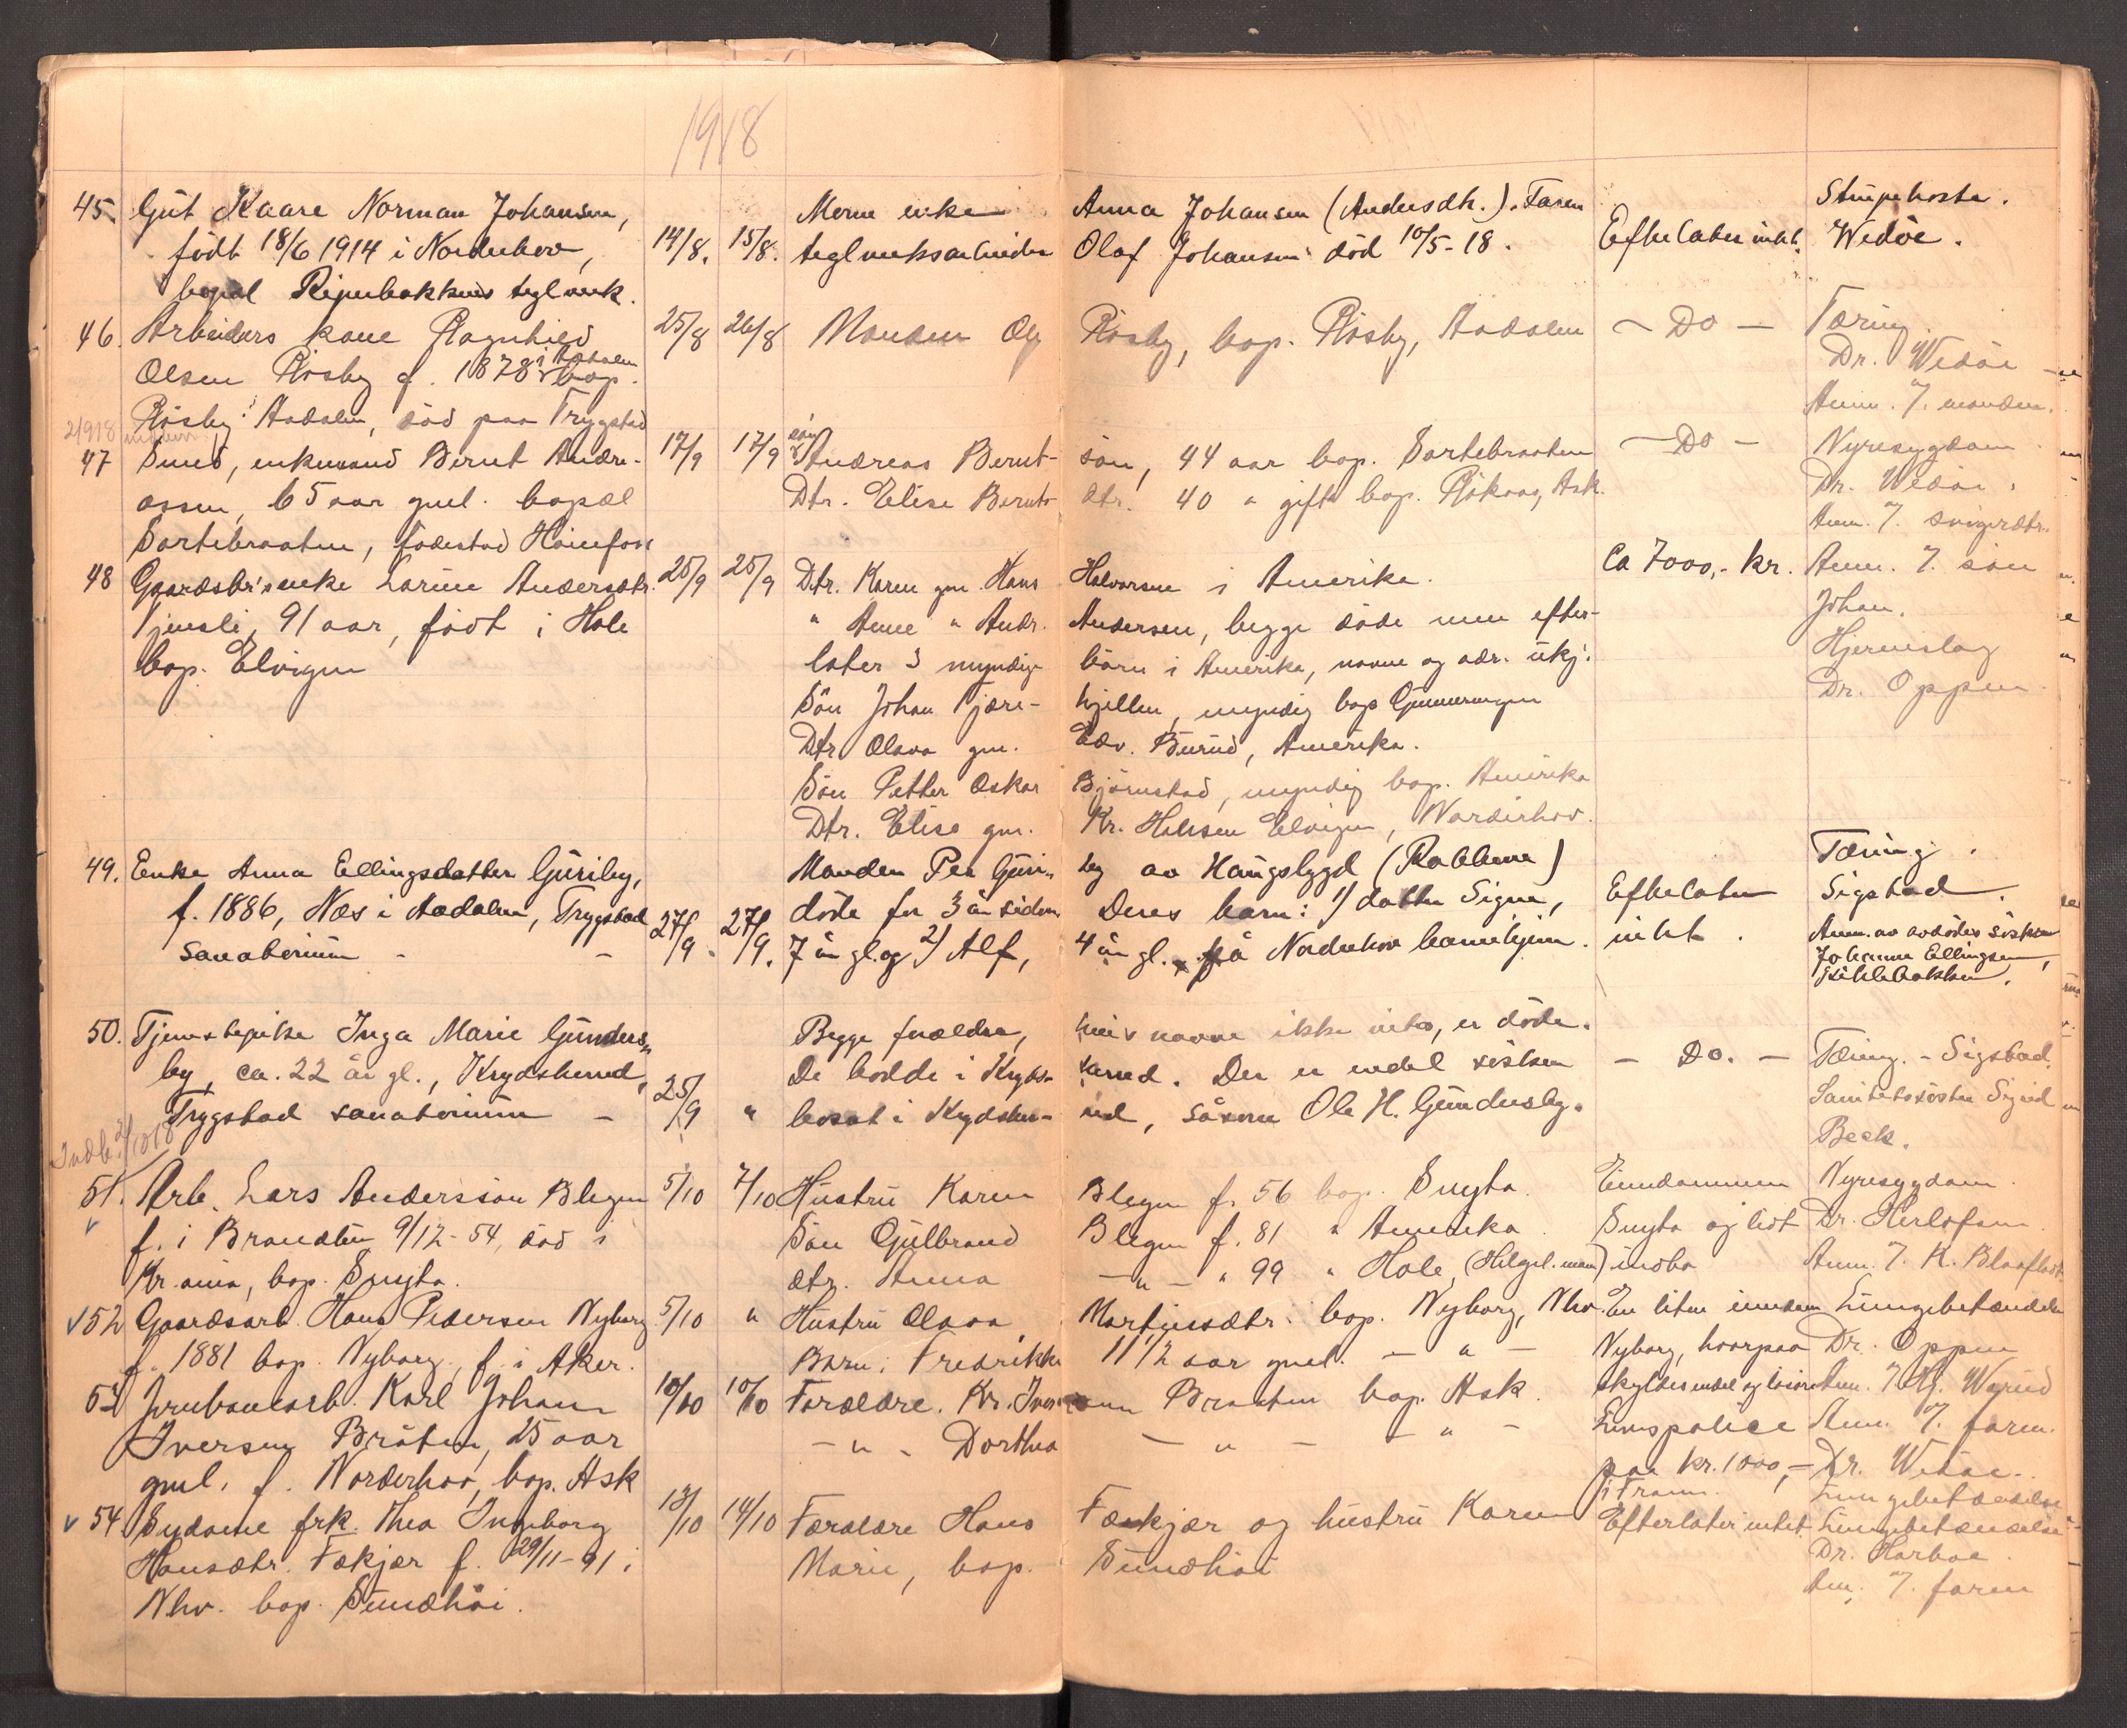 1918
45. Gut Kaare Norman Johansen, Moren enke Anna Johansen (Andersdtr.). Faren Strupehoste.
født 18/6 1914 i Norderhov, 14/8. 15/8. teglverksarbeider Olaf Johansen død 10/5-18. Efterlater intet. Wedøe.
bopæl teglverk.
46. Arbeiders kone Ragnhild 25/8 26/8 Manden Ole Røsby, bop. Røsby, Aadalen - Do - Tæring
Olsen Røsby f. 1878 i Aadalen bop. Dr. Wedøe
Røsby Aadalen, død paa Trygstad Anm. 7. manden.
2/9 18 indberr.
47 Smed, enkemand Bernt Andre- 17/9 17/9 søn Andreas Bernt- søn, 44 aar bop. Sortebraaten - Do - Nyresygdom
assen, 65 aar gml. bopæl Dtr. Elise Bernts- dtr. 40 " gift bop. Ask. Dr. Wedøe.
Sortebraaten, fødested Hønefoss Anm. 7. svigerdtr.
48 Gaardbr.enke Larine Andersdtr. 25/9 25/9 Dtr. Karen gm. Hans Halvorsen i Amerika. Ca 7000,- kr. Anm. 7. søn
91 aar, født i Hole " Anne " Andr. Andersen, begge døde men efter- Johan.
bop. Elvigen later 3 myndige børn i Amerika, navne og adr. ukj. Hjerneslag
Søn Johan Tjære- hjellen, myndig bop Dr. Oppen.
Dtr Olava gm. Edv. Burud, Amerika.
Søn Petter Oskar Bjørnstad, myndig bop. Amerika
Dtr. Elise gm. Kr. Hansen Elvigen, Norderhov.
49. Enke Anna Ellingsdatter Guriby, Manden Per Guri- by av Haugsbygd (Rabbene) Tæring.
f. 1886, Næs i Aadalen, Trygstad 27/9. 27/9. døde for 3 år siden Deres barn: 1) datter Signe, Efterlater Sigstad.
sanatorium - - 7 år gl. og 2) Alf, 4 år gl. på Norderhov barnehjem. intet. Anm. av avdødes søster
Johanne Ellingsen,
50. Tjenestepike Inga Marie Gunders- Begge forældre, hvis navne ikke vites, er døde. - Do. - Tæring. - Sigstad.
by, ca. 22 år gl., Krydsherred, 25/9 " De bodde i Kryds- herred. Der er endel søsken Sanitetssøster Sigrid
Trygstad sanatorium - bosat i Krydsher- red, såsom Ole H. Gundersby. Beck.
Indb. 2/10 18
51. Arb. Lars Anderssøn Blegen 5/10 7/10 Hustru Karen Blegen f. 56 bop. Snyta. Eiendommen Nyresygdom.
f. i Brandbu 9/12-54, død i Søn Gulbrand Blegen f. 81 " Amerika. Snyta og lidt Dr.
Kr.ania, bop. Snyta. dtr. Anna - " - " 99 " Hole, indbo Anm. 7. K.
52 Gaardsarb. Hans Pedersen Nyborg 5/10 " Hustru Olava Martinsdtr. bop. Nyborg, Nhv. En liten eiendom Lungebetændelse
f. 1881 bop. Nyborg, f. i Aker. Barn: Fredrikke 11 1/2 aar gml. - " - Nyborg, hvorpaa Dr. Oppen
53 Jernbanearb. Karl Johan 10/10 10/10 Forældre. Kr. Iver- sen Braaten bop. Ask. skyldes endel og løsøre Anm. 7.
Iversen Bråten, 25 aar - " - Dorthea - " - - " - Livspolice Anm. 7. faren.
gml. f. Norderhov, bop. Ask paa kr. 1000,- Dr. Wedøe.
i Fram. Lungebetændelse
54. Sydame frk. Thea Ingeborg 13/10 14/10 Forældre Hans Fækjær og hustru Karen Efterlater intet Lungebetændelse
Hansdtr. Fækjær f. 29/11-91 i Marie, bop. Sundhøi Dr. Harboe.
Nhv. bop. Sundhøi. Anm. 7. faren